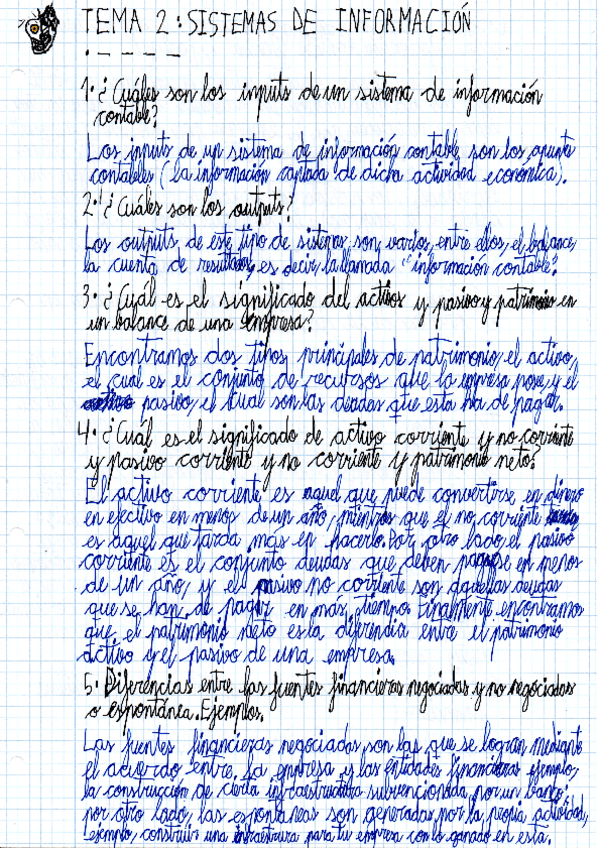 TEMA 2: SISTEMAS DE INFORMACIÓN
1. ¿Cuáles son los inputs de un sistema de información
contable?
Los inputs de un sistema de información contable son los apunte
contables (la información captada de dicha actividad económica).
2. ¿Cuáles son los outputs?
Los outputs de este tipo de sistemas son varios, entre ellos, el balance,
la cuenta de resultados, es decir, la llamada "información contable".
3. ¿Cuál es el significado del activos y pasivos y patrimonio en
un balance de una empresa?
Encontramos dos tipos principales de patrimonio, el activo,
el cual es el conjunto de recursos que la empresa posee, y el
pasivo, el cual son las deudas que esta ha de pagar.
4. ¿Cuál es el significado de activo corriente y no corriente
y pasivo corriente y no corriente y patrimonio neto?
El activo corriente es aquel que puede convertirse en dinero
en efectivo en menos de un año, mientras que el no corriente
es aquel que tarda más en hacerlo. Por otro lado, el pasivo
corriente es el conjunto deudas que deben pagarse en menos
de un año, y el pasivo no corriente son aquellas deudas
que se han de pagar en más tiempo. Finalmente encontramos
que el patrimonio neto es la diferencia entre el patrimonio
activo y el pasivo de una empresa.
5. Diferencias entre las fuentes financieras negociadas y no negociadas
o espontánea. Ejemplos.
Las fuentes financieras negociadas son las que se logran mediante
el acuerdo entre la empresa y las entidades financieras ejemplo,
la construcción de cierta infraestructura subvencionada por un banco;
por otro lado, las espontáneas son generadas por la propia actividad,
ejemplo, construir una infraestrura para tu empresa con lo ganado en esta.